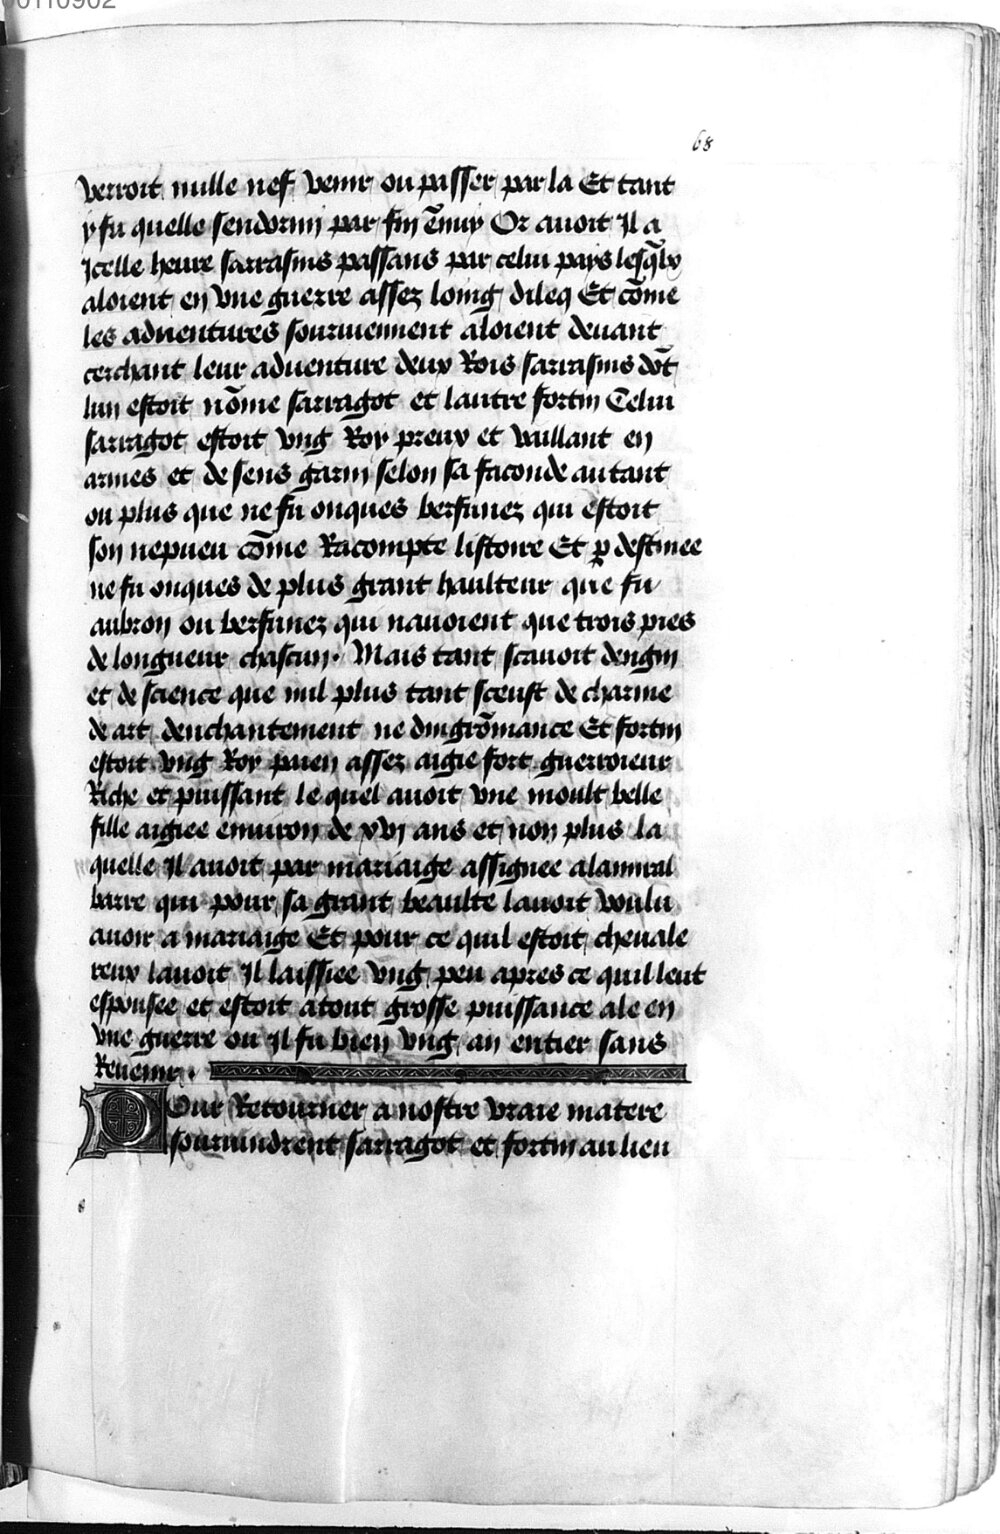 00110902
68
verroit nulle nef venir ou passer par la Et tant
y fu quelle sendormi par fin ēnuy Or auoit Il a
Icelle heure sarrasins passans par celui pays lesq̄lx
aloient en vne guerre assez loing dileq Et cōme
les aduentures souruiennent aloient deuant
cerchant leur aduenture deux Rois sarrasins dōt
lun estoit nōme sarragot et lautre fortin Celui
sarragot estoit vng Roy preux et vaillant en
armes et de sens garni selon sa faconde autant
ou plus que ne fu onques berfunez qui estoit
son nepueu cōme Racompte listoire Et ꝑ destinee
ne fu onques de plus grant haulteur que fu
aubron ou berfunez qui nauoient que trois pies
de longueur chascun. Mais tant scauoit dengin
et de science que nul plus tant sceust de charme
de art denchantement ne dingrōmance Et fortin
estoit vng Roy paien assez aigie fort guerroieur
Riche et puissant le quel auoit vne moult belle
fille aigiee enuiron de xvi ans et non plus la
quelle Il auoit par mariaige assignee alamiral
barre qui pour sa grant beaulte lauoit voulu
auoir a mariaige Et pour ce quil estoit cheuale
reux lauoit Il laissiee vng peu apres ce quil leut
espousee et estoit atout grosse puissance ale en
vne guerre ou Il fu bien vng an entier sans
Reuenir.
Pour Retourner a nostre vraie matere
souruindrent sarragot et fortin au lieu